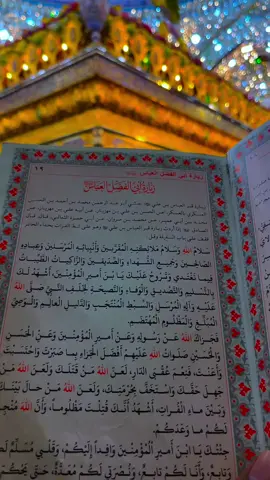 زيارة أبي الفضل العباس
١٩
زِيَارَةُ أَبِي الْفَضْلِ الْعَبَّاسِ
سَلَامُ اللهِ وَسَلَامُ مَلَائِكَتِهِ الْمُقَرَّبِينَ وَأَنْبِيَائِهِ الْمُرْسَلِينَ وَعِبَادِهِ
الصَّالِحِينَ وَجَمِيعِ الشُّهَدَاءِ وَالصِّدِّيقِينَ وَالزَّاكِيَاتُ الطَّيِّبَاتُ
فِيمَا تَغْتَدِي وَتَرُوحُ عَلَيْكَ يَا بْنَ أَمِيرِ الْمُؤْمِنِينَ أَشْهَدُ لَكَ
بِالتَّسْلِيمِ وَالتَّصْدِيقِ وَالْوَفَاءِ وَالنَّصِيحَةِ لِخَلَفِ النَّبِيِّ صَلَّى اللهُ
عَلَيْهِ وَآلِهِ الْمُرْسَلِ وَالسِّبْطِ الْمُنْتَجَبِ وَالدَّلِيلِ الْعَالِمِ وَالْوَصِيِّ
الْمُبَلِّغِ وَالْمَظْلُومِ الْمُهْتَضَمِ.
فَجَزَاكَ اللهُ عَنْ رَسُولِهِ وَعَنْ أَمِيرِ الْمُؤْمِنِينَ وَعَنِ الْحَسَنِ
وَالْحُسَيْنِ صَلَوَاتُ اللهِ عَلَيْهِمْ أَفْضَلَ الْجَزَاءِ بِمَا صَبَرْتَ وَاحْتَسَبْتَ
وَأَعَنْتَ، فَنِعْمَ عُقْبَى الدَّارِ، لَعَنَ اللهُ مَنْ قَتَلَكَ وَلَعَنَ اللهُ مَنْ
جَهِلَ حَقَّكَ وَاسْتَخَفَّ بِحُرْمَتِكَ، وَلَعَنَ اللهُ مَنْ حَالَ بَيْنَكَ
وَبَيْنَ مَاءِ الْفُرَاتِ، أَشْهَدُ أَنَّكَ قُتِلْتَ مَظْلُوماً، وَأَنَّ اللهَ مُنْجِزٌ
لَكُمْ مَا وَعَدَكُمْ.
جِئْتُكَ يَا بْنَ أَمِيرِ الْمُؤْمِنِينَ وَافِداً إِلَيْكُمْ، وَقَلْبِي مُسَلِّمٌ لَكُمْ
وَتَابِعٌ، وَأَنَا لَكُمْ تَابِعٌ، وَنُصْرَتِي لَكُمْ مُعَدَّةٌ، حَتَّى يَحْكُمَ